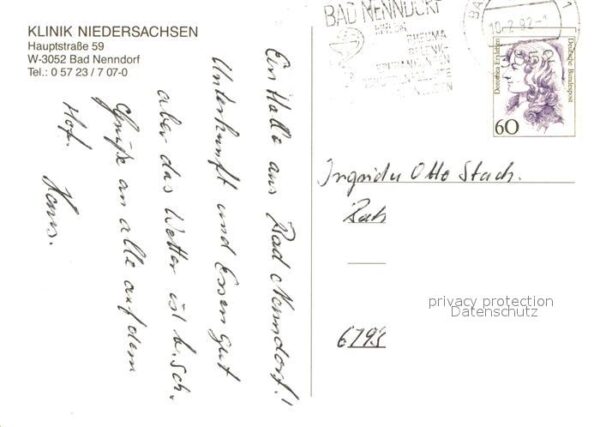 KLINIK NIEDERSACHSEN
Hauptstraße 59
W-3052 Bad Nenndorf
Tel.: 0 57 23 / 7 07-0
Ein Hallo aus Bad Nenndorf!
Unterkunft und Essen gut
aber das Wetter ist b. sch.
Grüße an alle auf dem
Hof.
BAD NENNDORF
RHEUMA
GELENKE
Dorothea Erxleben
Deutsche Bundespost
60
Ingrid u Otto Stach.
privacy protection
Datenschutz